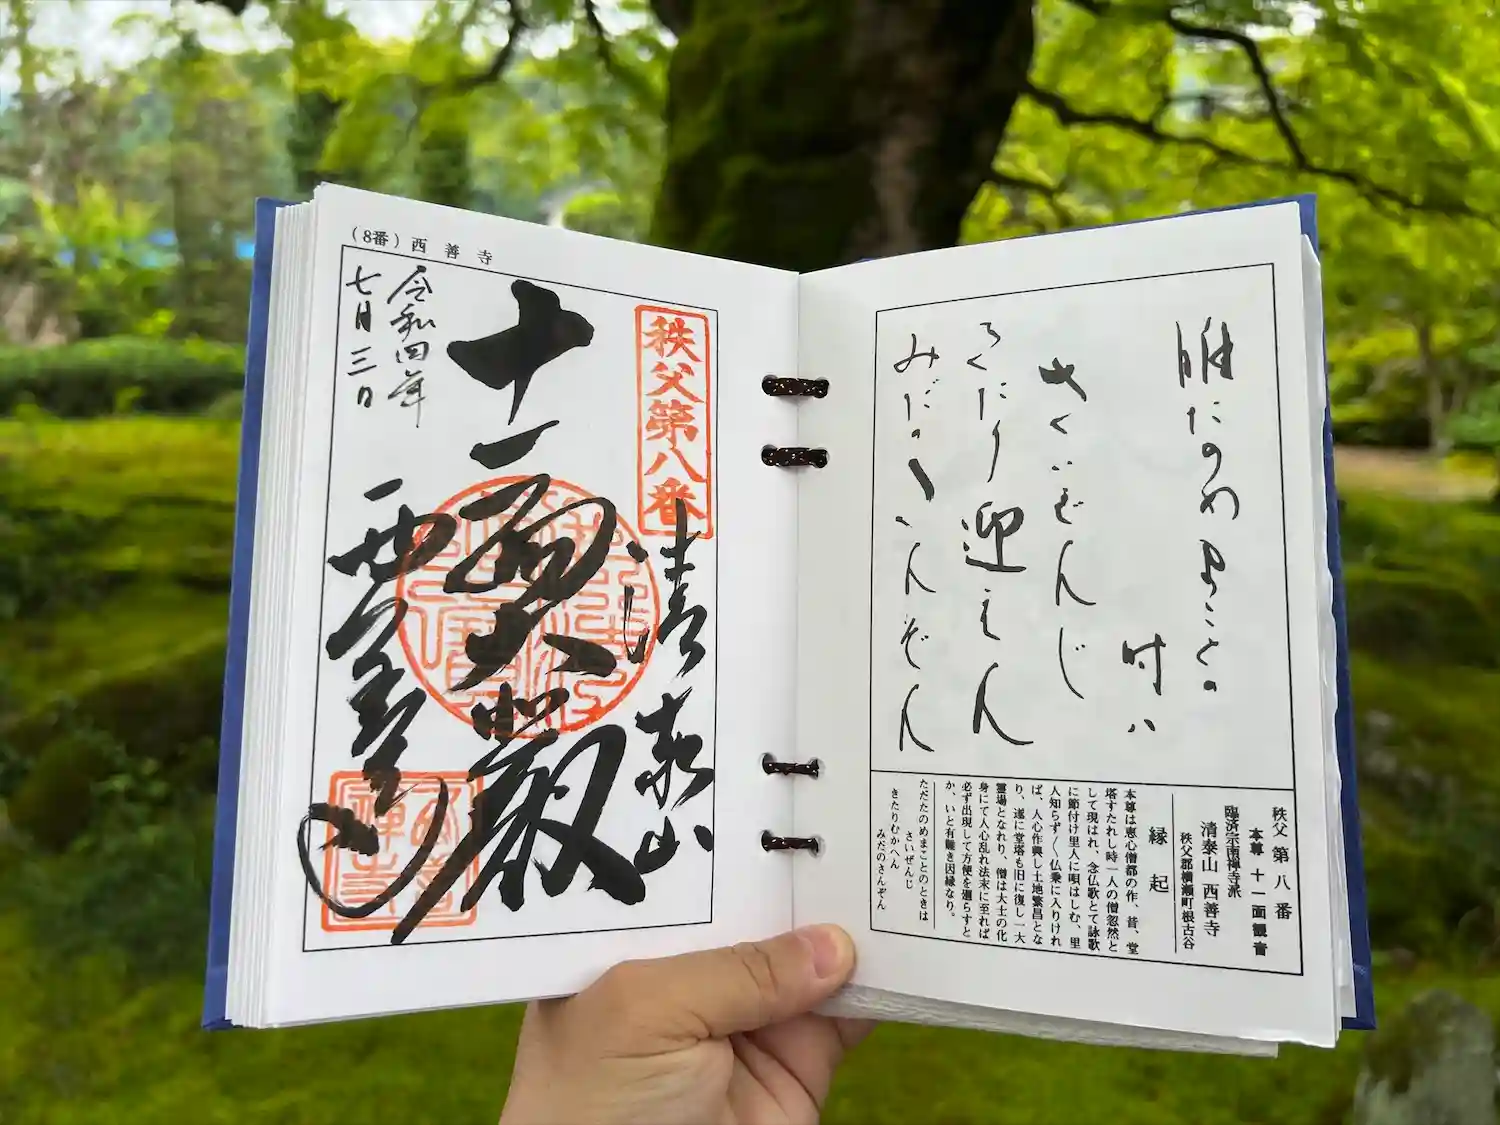 唯たのめまことの
時ハ
さいぜんじ
きたり迎えん
みだのさんぞん
秩父第八番
本尊 十一面観音
臨済宗南禅寺派
清泰山 西善寺
秩父郡横瀬町根古谷
縁起
本尊は恵心僧都の作、昔、堂
塔すたれし時一人の僧忽然と
して現はれ、念仏歌とて詠歌
に節付け里人に唄はしむ、里
人知らず〳〵仏乗に入りけれ
ば、人心作興し土地繁昌とな
り、遂に堂塔も旧に復し一大
霊場となれり、僧は大士の化
身にて人心乱れ法末に至れば
必ず出現して方便を廻らすと
か、いと有難き因縁なり。
ただたのめまことのときは
さいぜんじ
きたりむかへん
みだのさんぞん
(8番) 西善寺
秩父第八番
清泰山
十一面大悲殿
令和四年
七月三日
西善寺
西善禅寺